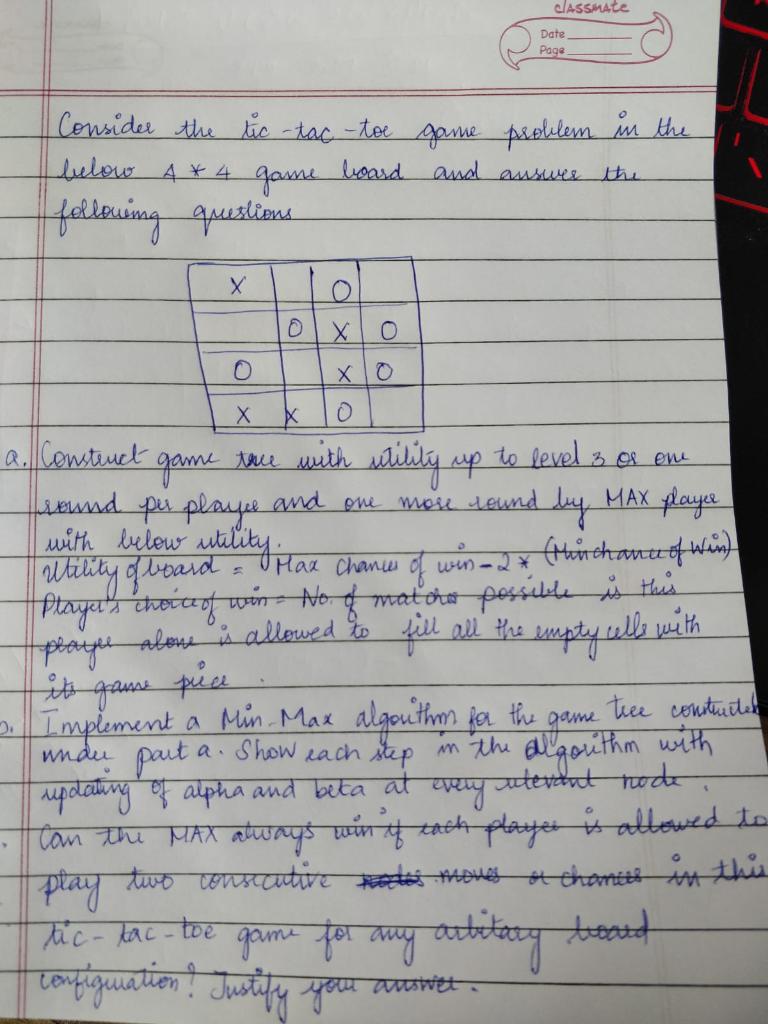 classmate
Date
Page
Consider the tic-tac-toe game problem in the
below 4 * 4 game board and answer the
following questions
X O
O X O
O X O
X X O
a. Construct game tree with utility up to level 3 or one
round per player and one more round by MAX player
with below utility.
Utility of board = Max chances of win - 2* (Min chance of Win)
Player's choice of win = No. of matches possible is this
player alone is allowed to fill all the empty cells with
its game piece.
b. Implement a Min-Max algorithm for the game tree constructed
under part a. Show each step in the algorithm with
updating of alpha and beta at every relevant node.
. Can the MAX always win if each player is allowed to
play two consecutive moves or chances in this
tic-tac-toe game for any arbitary board
configuration? Justify your answer.